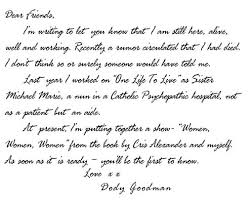 Dear Friends,
I'm writing to let you know that I am still here, alive,
well and working. Recently a rumor circulated that I had died.
I don't think so or surely someone would have told me.
Last year I worked on "One Life To Live" as Sister
Michael Marie, a nun in a Catholic Psychopathic hospital, not
as a patient but an aide.
At present, I'm putting together a show- "Women,
Women, Women" from the book by Cris Alexander and myself.
As soon as it is ready - you'll be the first to know.
Love x x
Dody Goodman